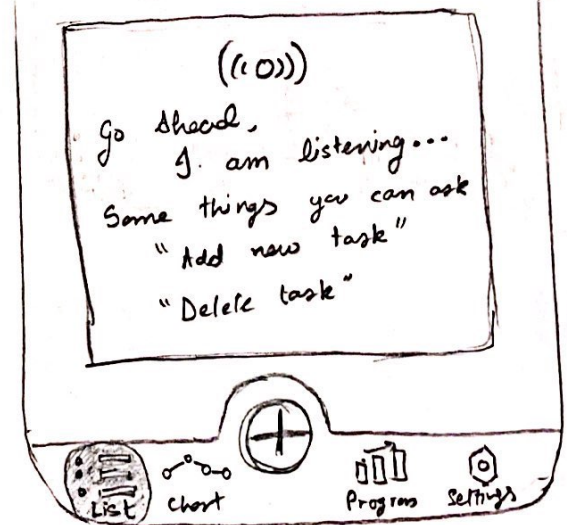 Go Ahead,
I. am listening...
Some things you can ask
"Add new task"
"Delete task"
List
Chart
Progress
Settings